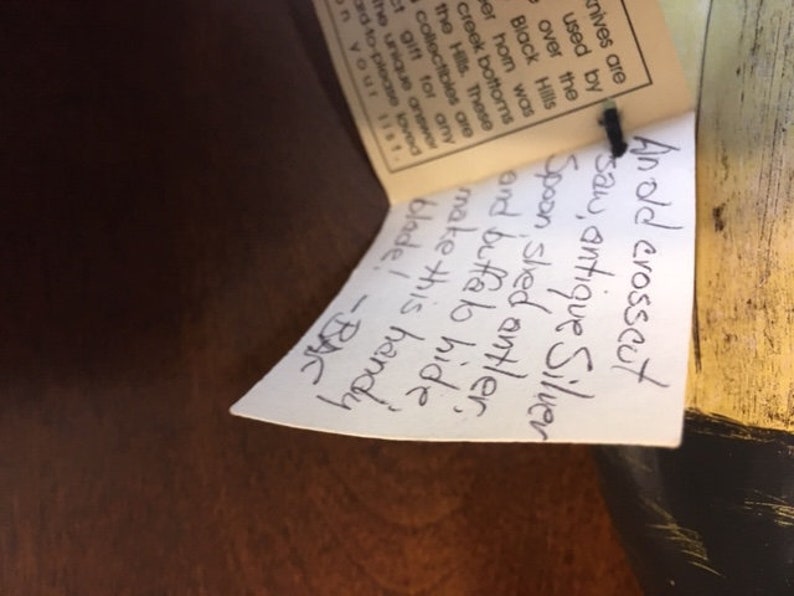 knives are
used by
over the
Black Hills
horn was
creek bottoms
the Hills. These
collectibles are
gift for any
the unique answer
loved
your list.
An old crosscut
saw, antique Silver
Spoon, shed antler,
and buffalo hide
make this handy
blade! -BAC